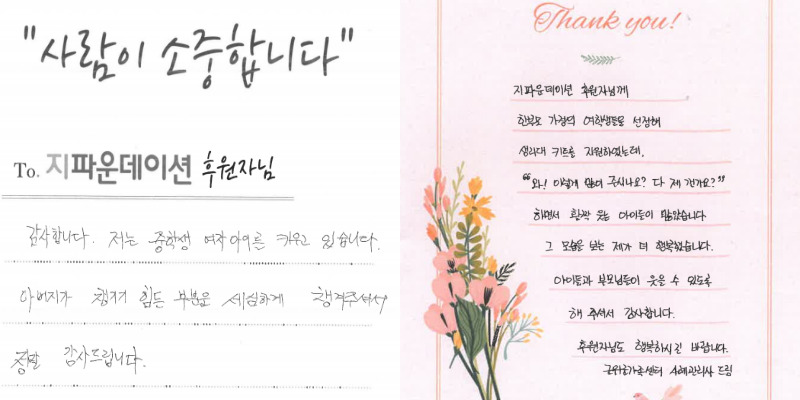 "사람이 소중합니다"
To. 지파운데이션 후원자님
감사합니다. 저는 중학생 여자아이를 키우고 있습니다.
아버지가 챙기기 힘든 부분을 세심하게 챙겨주셔서
정말 감사드립니다.
Thank you!
지파운데이션 후원자님께
한부모 가정의 여학생들을 선정해
생리대 키트를 지원하였는데,
"와! 이렇게 많이 주시나요? 다 제 건가요?"
하면서 활짝 웃는 아이들이 많았습니다
그 모습을 보는 제가 더 행복했습니다.
아이들과 부모님들이 웃을 수 있도록
해 주셔서 감사합니다.
후원자님도 행복하시길 바랍니다.
사례관리사 드림